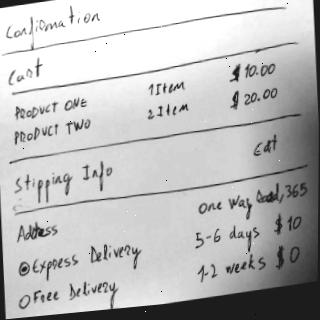 Confirmation
Cart
PRODUCT ONE 1 Item $10.00
PRODUCT TWO 2 Item $20.00
Edit
Shipping Info
Address One Way Road, 365
Express Delivery 5-6 days $10
Free Delivery 1-2 weeks $0